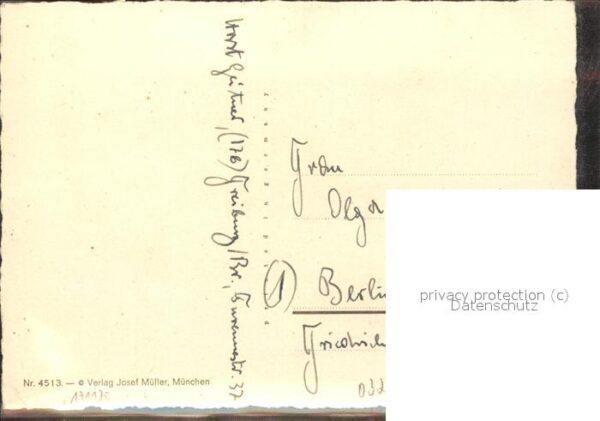 Horst Geitner, (17b) Freiburg/Br., Turennestr. 37
Frau
Olga
(1) Berlin
Friedrich
Nr. 4513. — © Verlag Josef Müller, München
191175
032
privacy protection (c)
Datenschutz